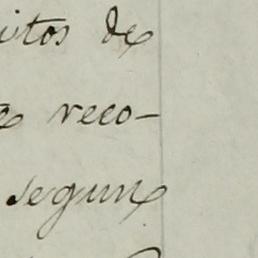 itos de
reco-
segun